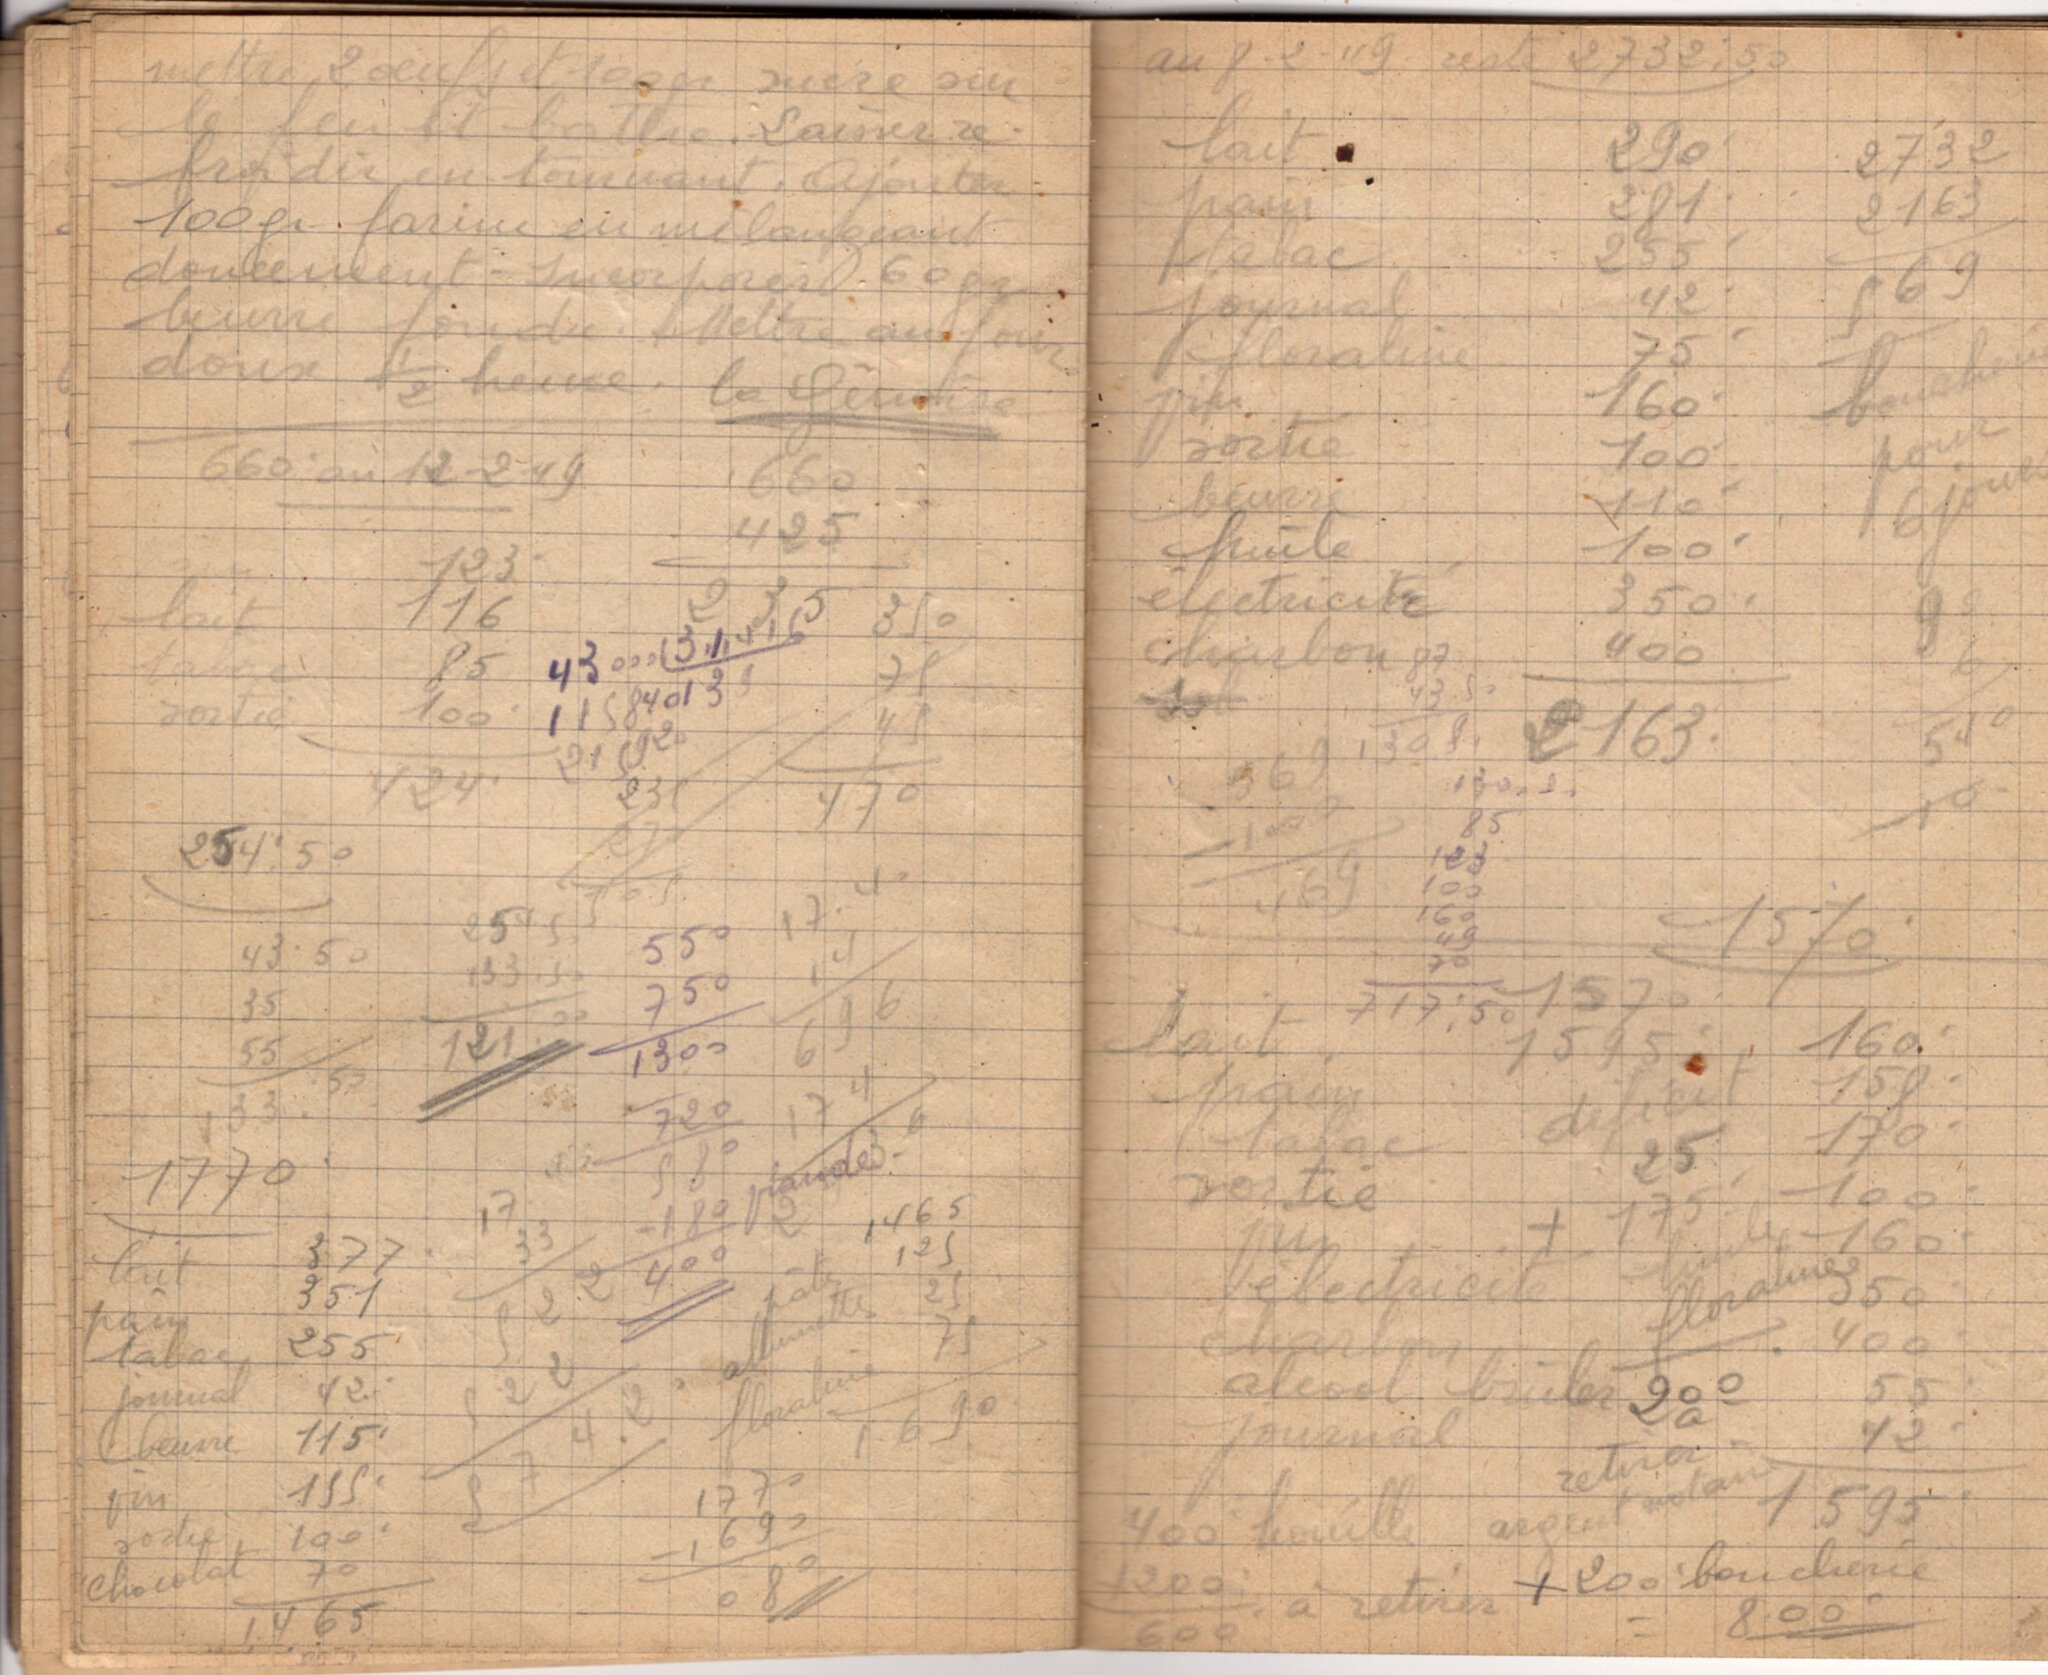 mettre 2 œufs et 100gr sucre sur
le feu et battre. Laisser re-
froidir en tournant. Ajouter
100gr farine en mélangeant
doucement - Incorporer 60gr
beurre fondu. Mettre au four
doux 1/2 heure. la Génoise
660· au 12-2-49
660
425
235
123·
lait 116
tabac 85
sortie 100·
424·
43000 31,416
115840 13
21592
350
75
45
470
254·50
43·50
35
55
133·50
254·50
133·50
121·00
550
750
1300
720
580
-180 viande
400
17·4
4
696
174
2
1770·
lait 377·
pain 351
tabac 255
journal 42·
beurre 115·
vin 155·
sortie 100·
chocolat 70
1465
17
33
522
522
5742
1465
pâtes 125
allumettes 25
floraline 75
1690
1770
-1690
080
au 8-2-49· reste 2732·50
lait 290·
pain 281·
tabac 255·
journal 42·
floraline 75·
vin 160·
sortie 100·
beurre 110·
huile 100·
électricité 350·
charbon 400
2163·
2732
2163
569
boucherie
pour
6 jours
90
6
540
87
43·50
130·5·
130·5·
85
123
100
160
49
70
717·50
569
-100
469
1570·
1570·
1595·
déficit
25
+ 175·
lait 160·
pain 158·
tabac 170·
sortie 100·
vin 160·
électricité 350·
charbon 400·
alcool brûler 55·
journal 42·
1595·
huile
floraline
200
a
retirer
argent notaire
400· houille
+200·
600· à retirer
+ 200· boucherie
= 800·